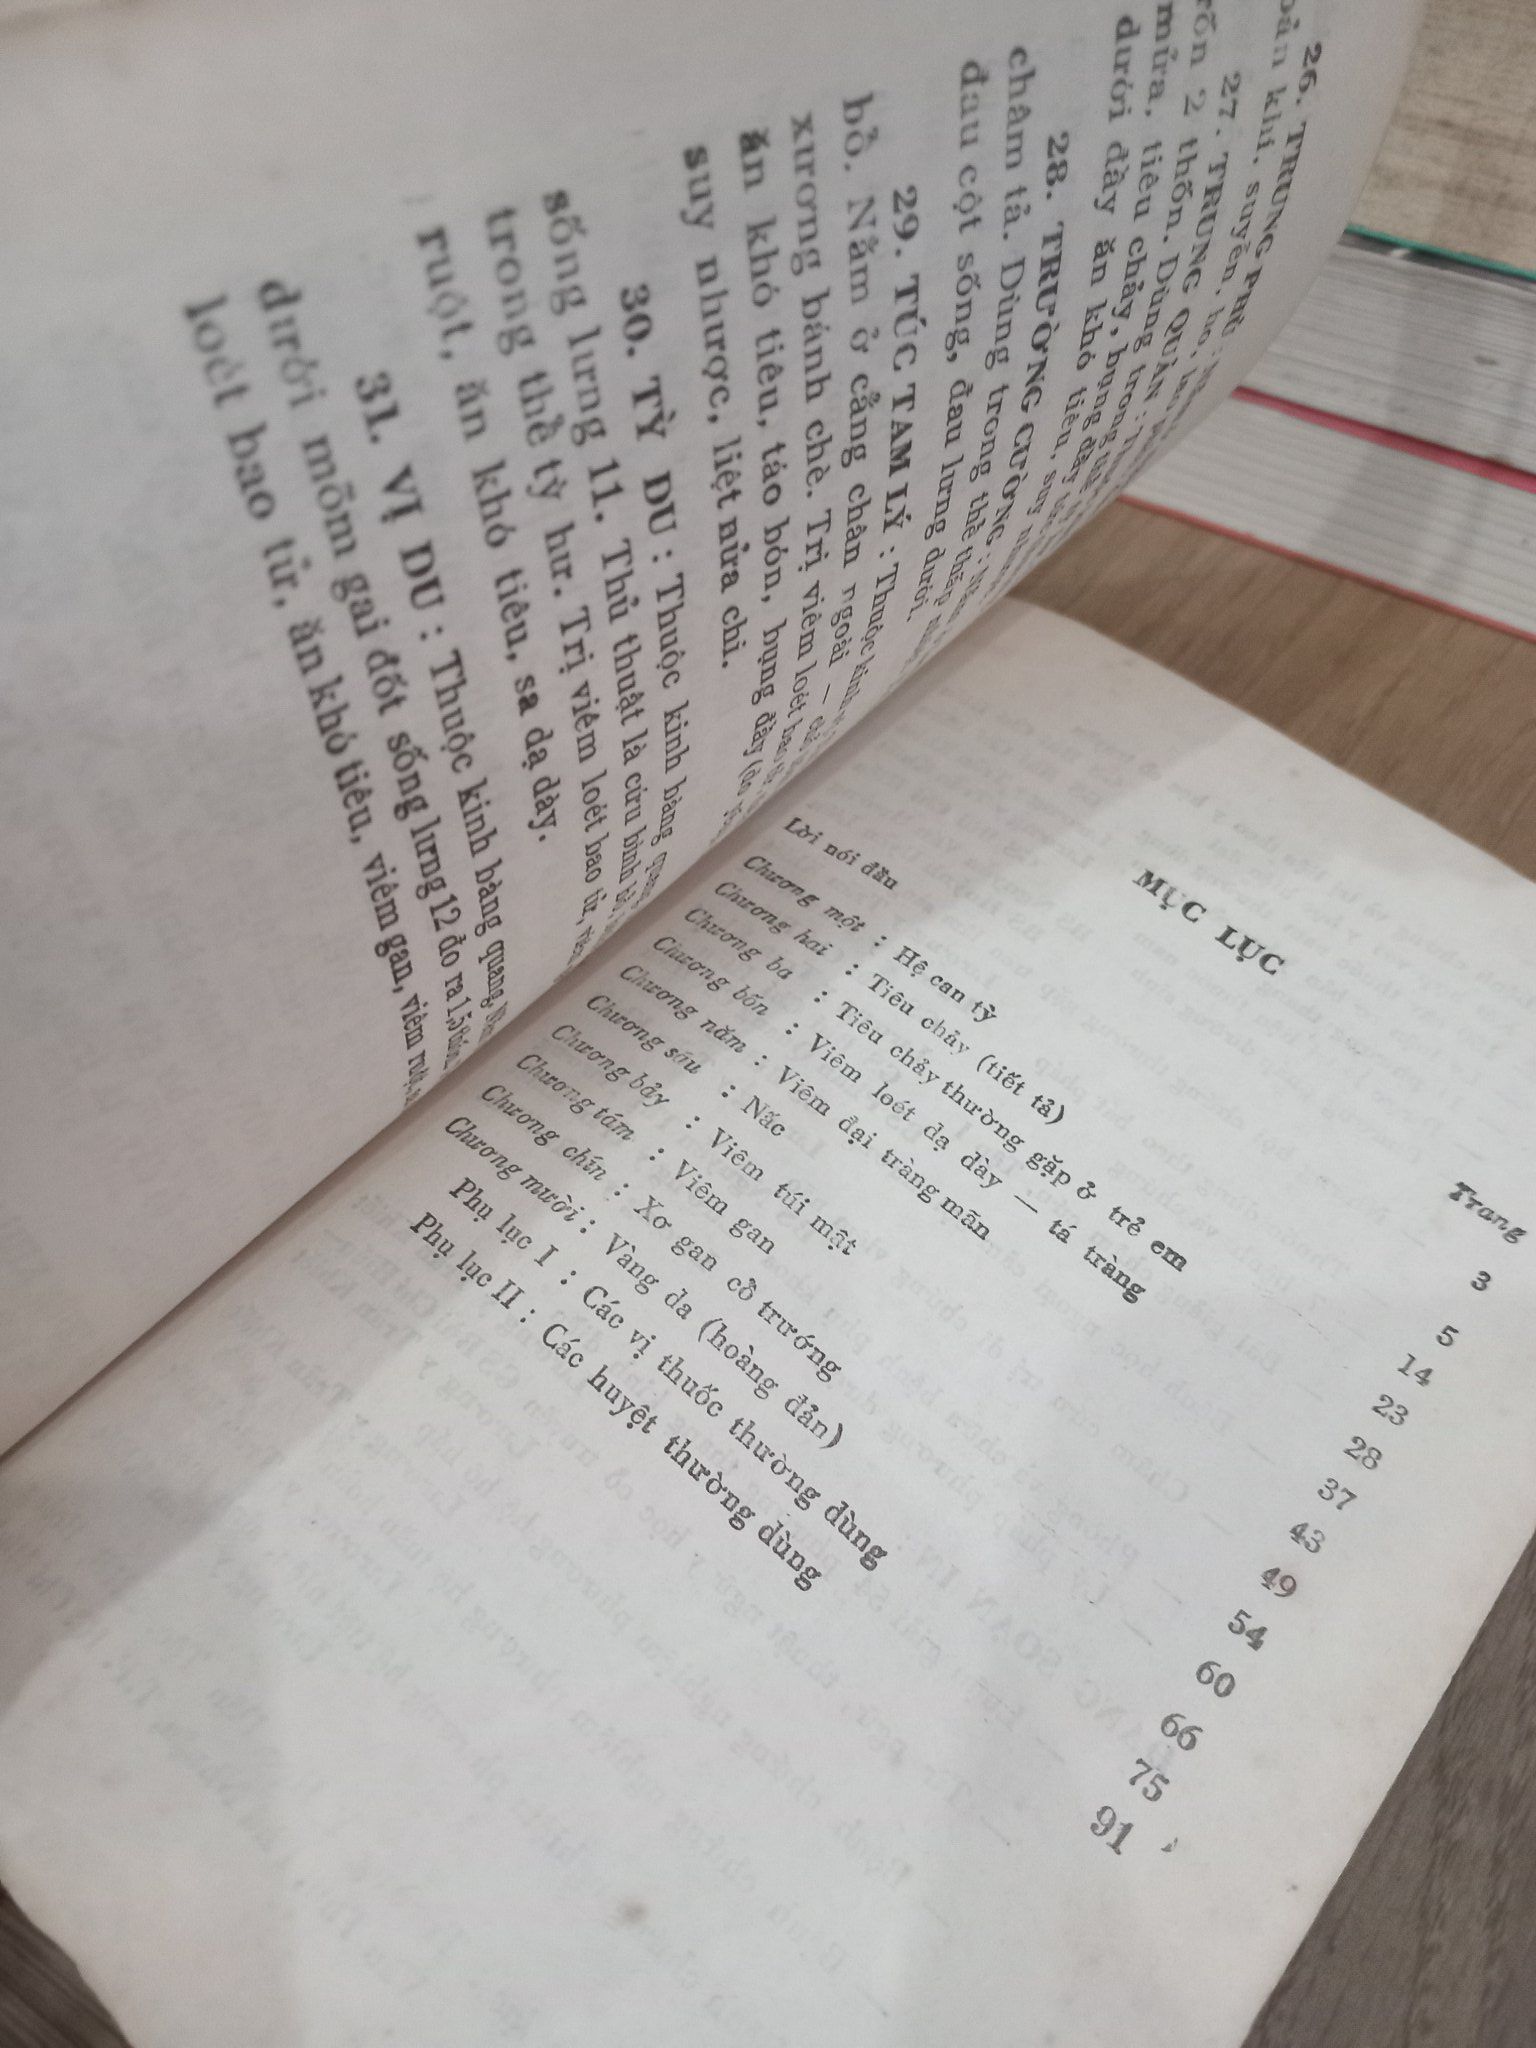 26. TRUNG PHỦ :
khí, suyễn, ho,
27. TRUNG QUẢN :
rốn 2 thốn. Dùng trong
mửa, tiêu chảy, bụng đầy
dưới đầy ăn khó tiêu, suy
28. TRƯỜNG CƯỜNG :
châm tả. Dùng trong thể thấp
đau cột sống, đau lưng dưới.
29. TÚC TAM LÝ : Thuộc kinh
bổ. Nằm ở cẳng chân ngoài —
xương bánh chè. Trị viêm loét bao tử
ăn khó tiêu, táo bón, bụng đầy (do
suy nhược, liệt nửa chi.
30. TỲ DU : Thuộc kinh bàng
sống lưng 11. Thủ thuật là cứu bình bổ,
trong thể tỳ hư. Trị viêm loét bao tử,
ruột, ăn khó tiêu, sa dạ dày.
31. VỊ DU : Thuộc kinh bàng quang,
dưới mõm gai đốt sống lưng 12 đo ra 1,5 thốn.
loét bao tử, ăn khó tiêu, viêm gan, viêm
MỤC LỤC
Trang
Lời nói đầu 3
Chương một : Hệ can tỳ 5
Chương hai : Tiêu chảy (tiết tả) 14
Chương ba : Tiêu chảy thường gặp ở trẻ em 23
Chương bốn : Viêm loét dạ dày — tá tràng 28
Chương năm : Viêm đại tràng mãn 37
Chương sáu : Nấc 43
Chương bảy : Viêm túi mật 49
Chương tám : Viêm gan 54
Chương chín : Xơ gan cổ trướng 60
Chương mười : Vàng da (hoàng đản) 66
Phụ lục I : Các vị thuốc thường dùng 75
Phụ lục II : Các huyệt thường dùng 91